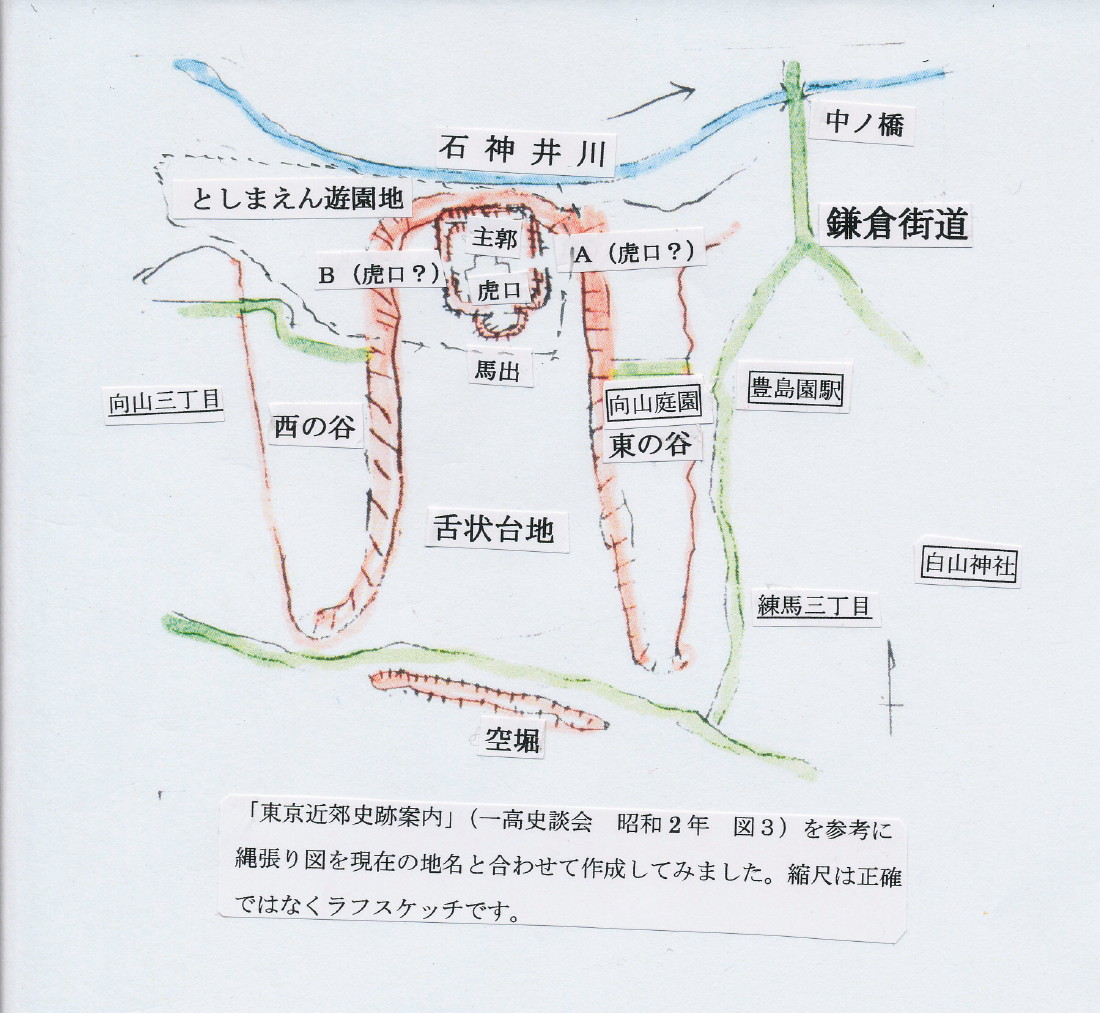 中ノ橋
石神井川
としまえん遊園地
鎌倉街道
主郭
A（虎口？）
B（虎口？）
虎口
馬出
豊島園駅
向山三丁目
向山庭園
西の谷
東の谷
舌状台地
白山神社
練馬三丁目
空堀
「東京近郊史跡案内」（一高史談会　昭和２年　図３）を参考に
縄張り図を現在の地名と合わせて作成してみました。縮尺は正確
ではなくラフスケッチです。